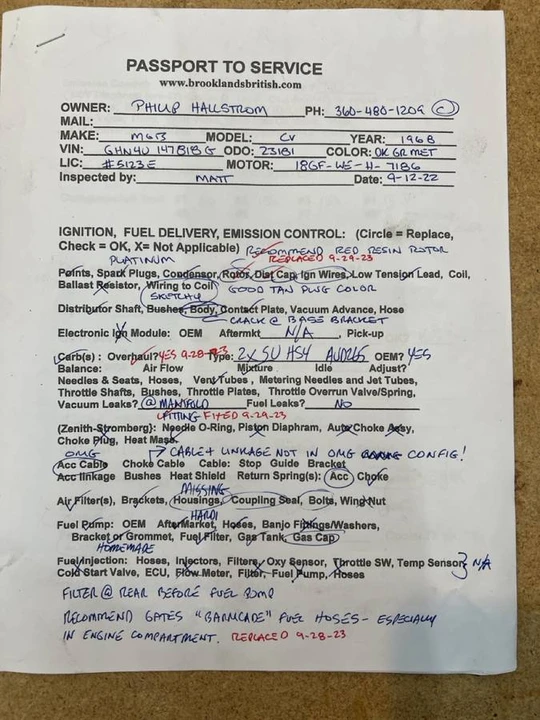 PASSPORT TO SERVICE
www.brooklandsbritish.com
OWNER: PHILIP HALLSTROM PH: 360-480-1209 C
MAIL:
MAKE: MGB MODEL: CV YEAR: 1968
VIN: GHN4U 147818 G ODO: 23181 COLOR: DK GR MET
LIC: #5123E MOTOR: 18GF-WE-H-7186
Inspected by: MATT Date: 9-12-22
IGNITION, FUEL DELIVERY, EMISSION CONTROL: (Circle = Replace,
Check = OK, X= Not Applicable) RECOMMEND RED RESIN ROTOR
PLATINUM REPLACED 9-29-23
Points, Spark Plugs, Condensor, Rotor, Dist Cap, Ign Wires, Low Tension Lead, Coil,
Ballast Resistor, Wiring to Coil GOOD TAN PLUG COLOR
SKETCHY
Distributor Shaft, Bushes, Body, Contact Plate, Vacuum Advance, Hose
CRACK @ BASE BRACKET
Electronic Ign Module: OEM Aftermkt N/A, Pick-up
Carb(s) : Overhaul? YES 9-28-23 Type: 2X SU HS4 AUD265 OEM? YES
Balance: Air Flow Mixture Idle Adjust?
Needles & Seats, Hoses, Vent Tubes, Metering Needles and Jet Tubes,
Throttle Shafts, Bushes, Throttle Plates, Throttle Overrun Valve/Spring,
Vacuum Leaks? @ MANIFOLD Fuel Leaks? NO
FITTING FIXED 9-29-23
(Zenith-Stromberg): Needle O-Ring, Piston Diaphram, Auto Choke Assy,
Choke Plug, Heat Mask
OMG CABLE + LINKAGE NOT IN OMG CONFIG!
Acc Cable Choke Cable Cable: Stop Guide Bracket
Acc linkage Bushes Heat Shield Return Spring(s): Acc Choke
MISSING
Air Filter(s), Brackets, Housings, Coupling Seal, Bolts, Wing Nut
HARDI
Fuel Pump: OEM AfterMarket, Hoses, Banjo Fittings/Washers,
Bracket or Grommet, Fuel Filter, Gas Tank, Gas Cap
HOMEMADE
Fuel Injection: Hoses, Injectors, Filters, Oxy Sensor, Throttle SW, Temp Sensor } N/A
Cold Start Valve, ECU, Flow Meter, Filter, Fuel Pump, Hoses
FILTER @ REAR BEFORE FUEL PUMP
RECOMMEND GATES "BARRICADE" FUEL HOSES - ESPECIALLY
IN ENGINE COMPARTMENT. REPLACED 9-28-23